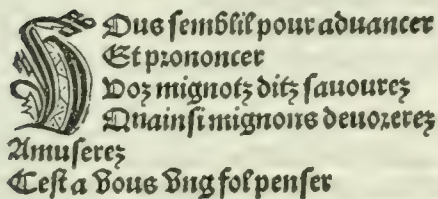 VOus semblil pour aduancer
Et prononcer
Voz mignotz ditz sauourez
Quainsi mignons deuorerez
Amuserez
Cest a vous vng fol penser